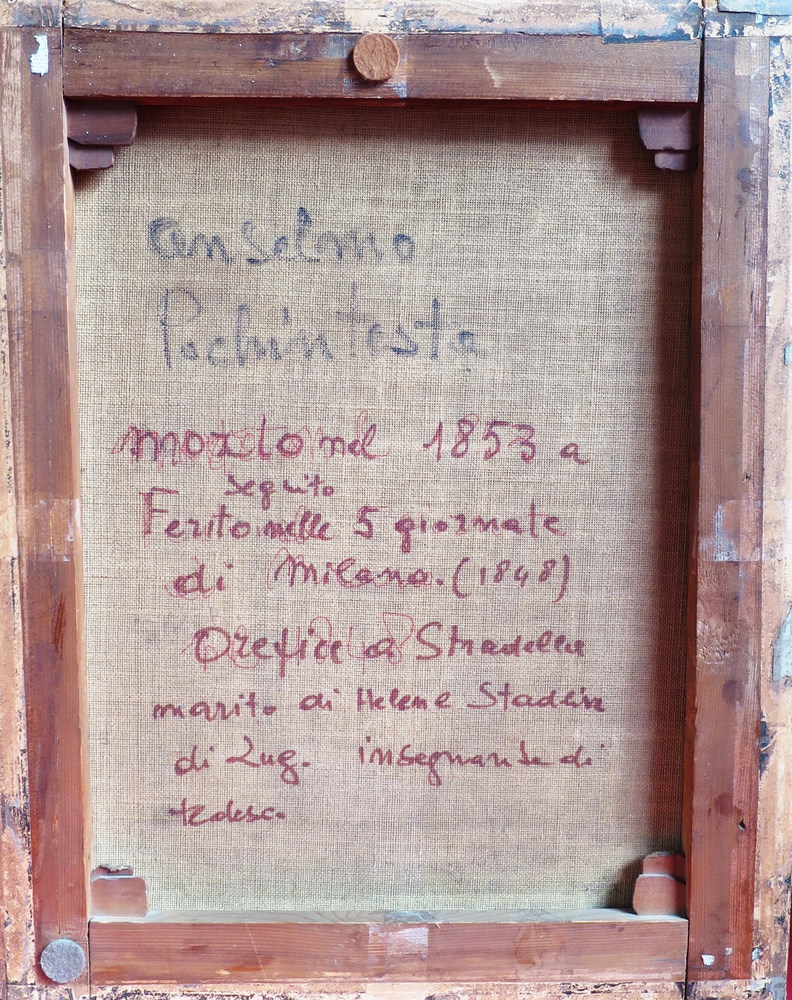 Anselmo
Pochintesta
morto nel 1853 a
seguito
Ferito nelle 5 giornate
di Milano. (1848)
Orefice a Stradella
marito di Helene Stadlin
di Zug. insegnante di
tedesco